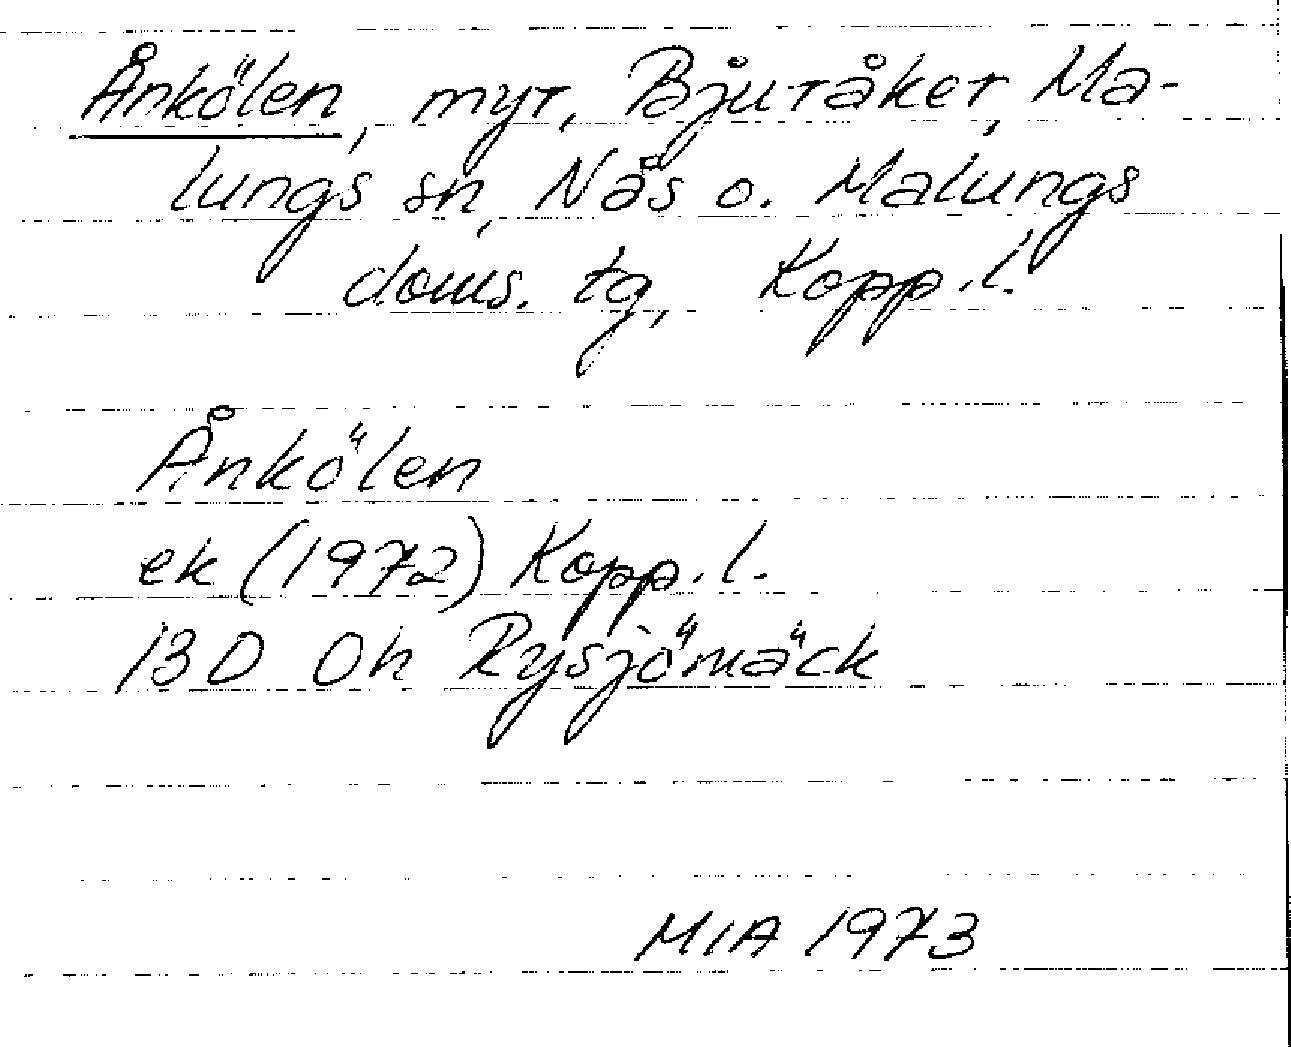 Ånkölen, myr, Bjuråker, Ma-
lungs sn, Nås o. Malungs
doms. tg, Kopp.l.
Ånkölen
ek (1972) Kopp.l.
13D 0h Rysjömäck
MIA 1973